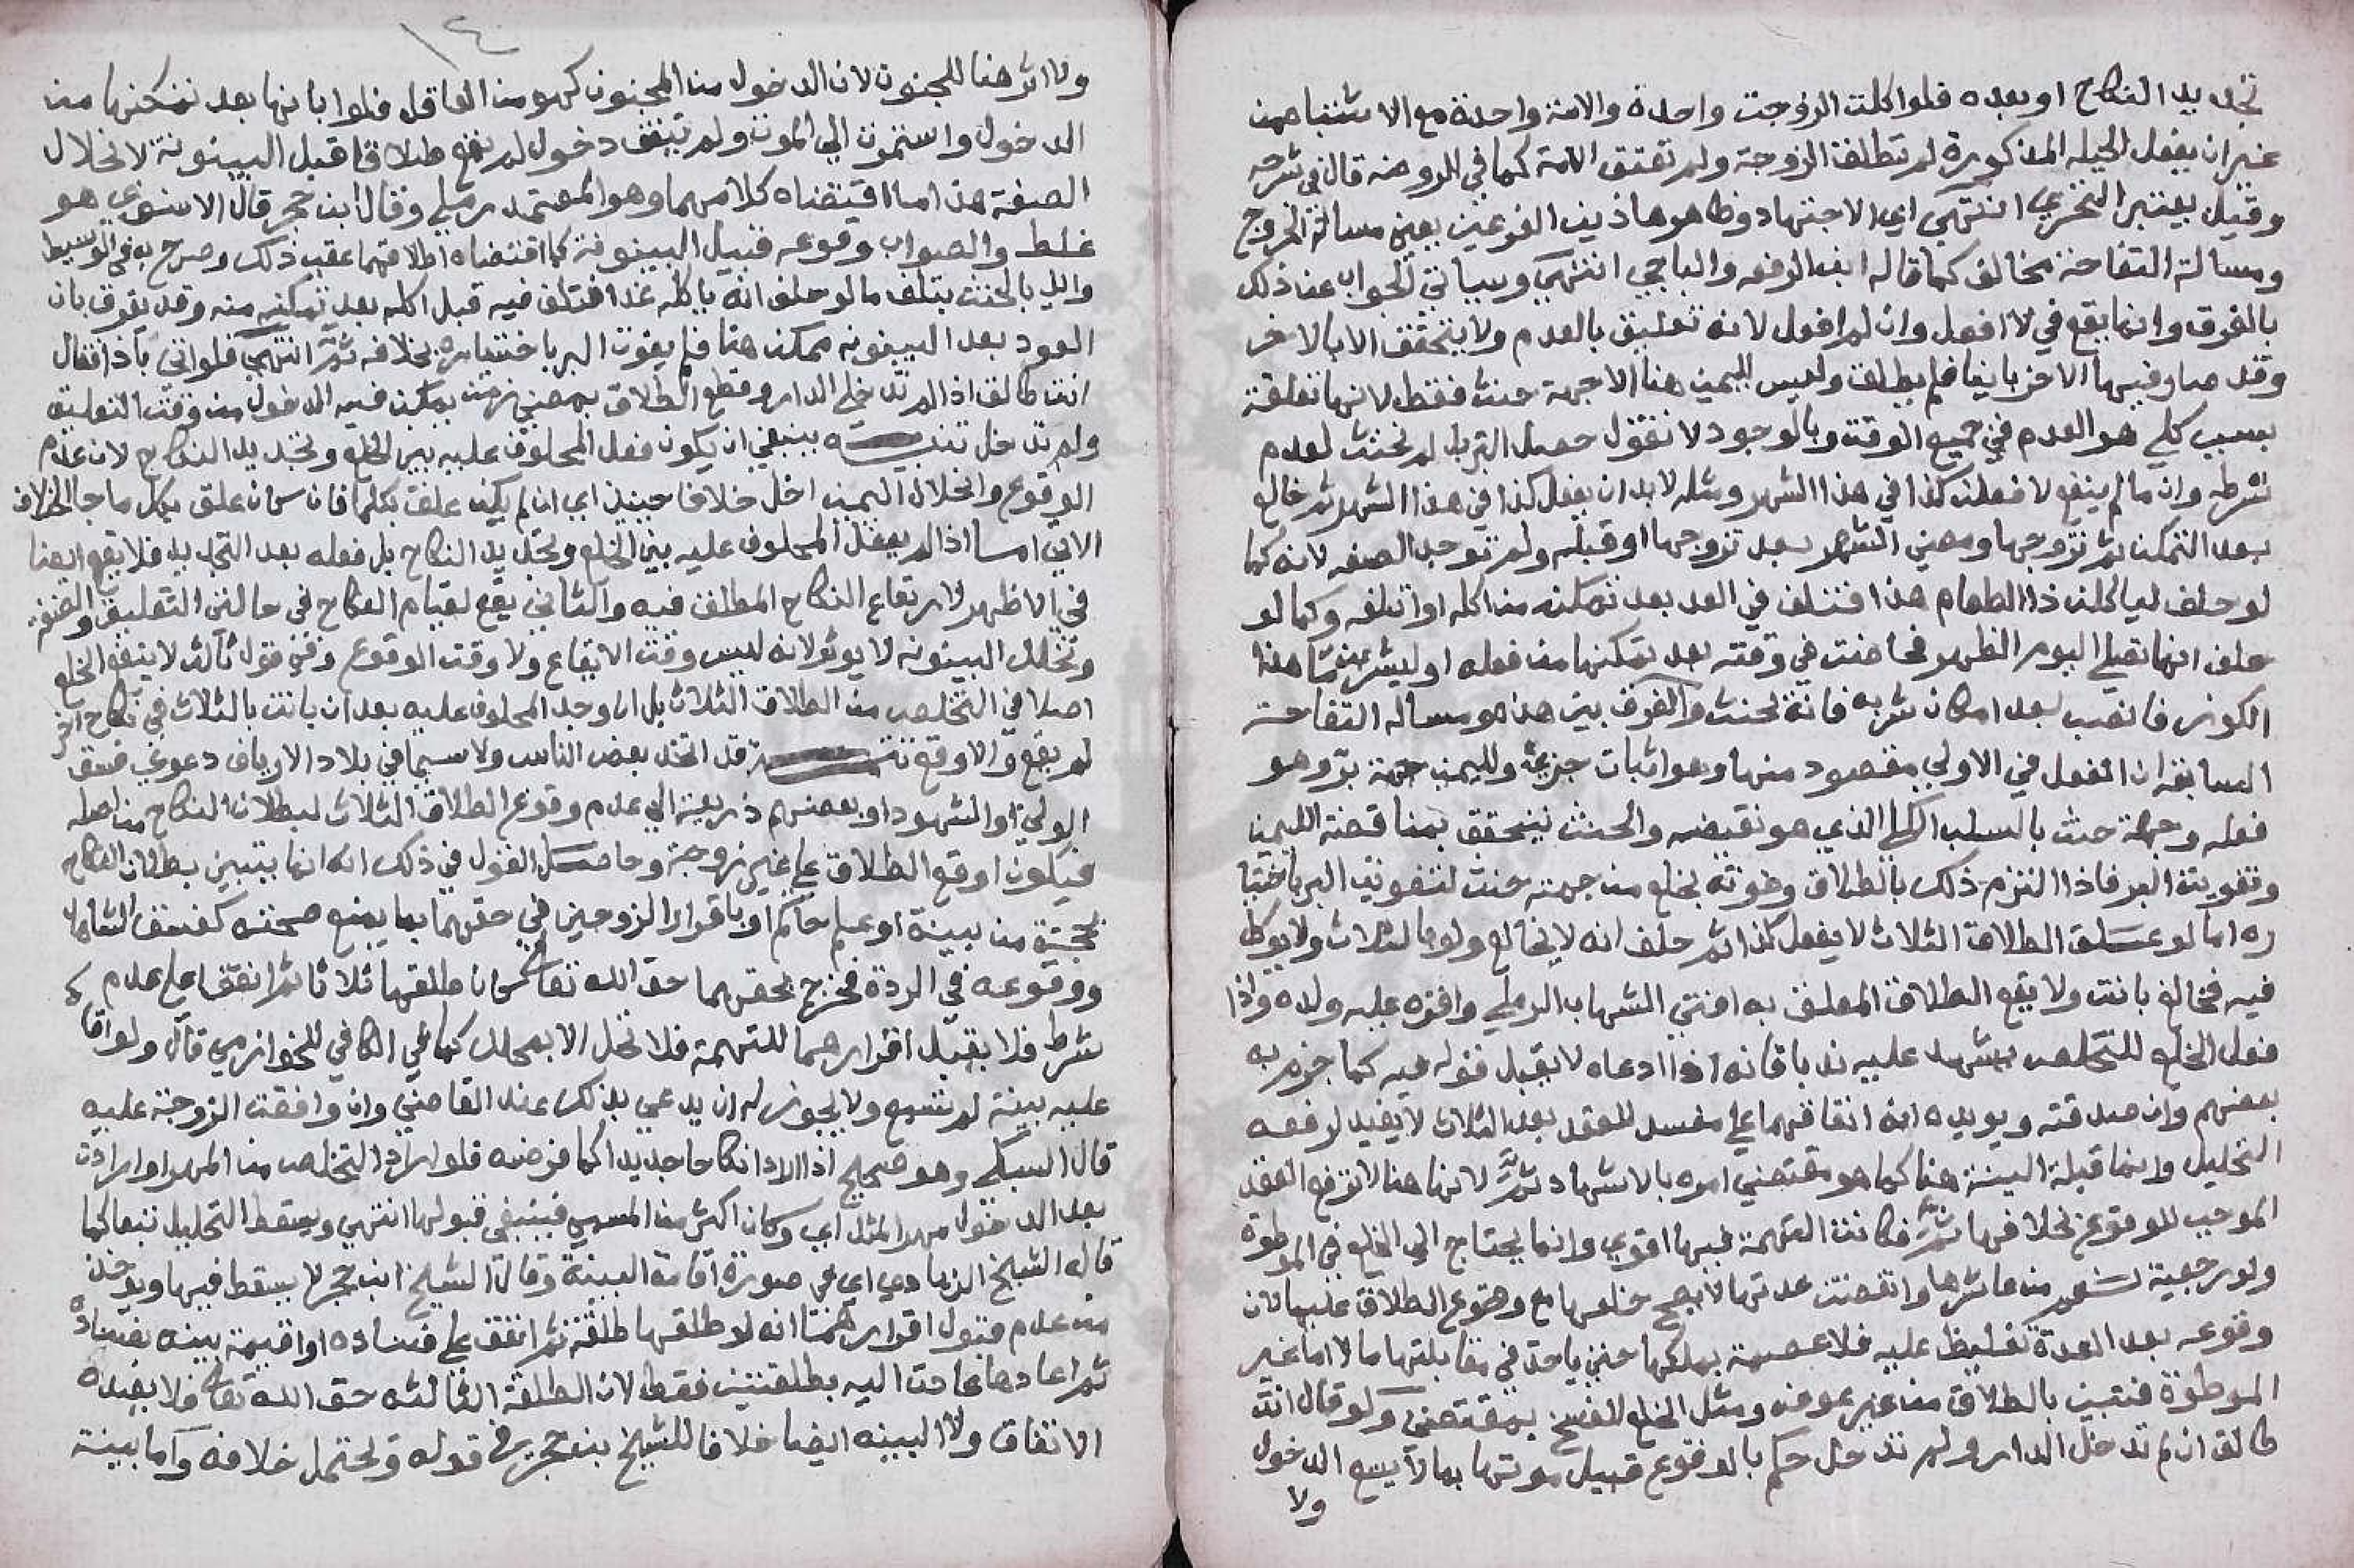 تجديد النكاح او بعده فلو اكلت الزوجت واحدة والامة واحدة مع الاشتباه من
غير ان يفعل الحيله المذكورة لم تطلق الزوجة ولم تعتق الامة كما في الروضه قال في شرحه
وقيل يعتبر التحري انتهي اي الاجتهاد وظاهر هاذين الفرعين يعني مسالة الخروج
ومسالة التفاحة مخالف كما قاله ابن الرفعه والباجي انتهي وسياتي الجواب عن ذلك
بالفرق وانما يقع في لا افعل وان لم افعل لانه تعليق بالعدم ولا يتحقق الا بالاخر
وقد صادفها الاخر باينا فلم يطلق وليس لليمين هنا الا جهة حنث فقط لانها تعلقت
بسبب كلي هو العدم في جميع الوقت وبالوجود لا نقول حصل البر بل لم نحنث لعدم
شرطه وان ما لم ينفع لا فعلن كذا في هذا الشهر ومثله لا بد ان يفعل كذا في هذا الشهر ثم خالع
بعد التمكن ثم تزوجها ومضي الشهر بعد تزوجها او قبله ولم توجد الصفه لانه كما
لو حلف لياكلن ذا الطعام هذا فتتلف في الغد بعد تمكنه من اكله او اتلفه وكما لو
حلف انها تصلي اليوم الظهر فحاضت في وقته بعد تمكنها من فعله او ليشربن ما هذا
الكوز فانصب بعد امكان شربه فانه يحنث والفرق بين هذه ومسالة التفاحة
السابقة ان الفعل في الاولي مقصود منها وهو اثبات جزيئ ولليمين جهة بر وهو
فعله وجهة حنث بالسلب الكلي الذي هو نقيضه والحنث يتحقق بمناقضة اليمين
وتفويت البر فاذا التزم ذلك بالطلاق وفوته بخلع من جهته حنث لتفويت البر باختيا
ره اما لو علق الطلاق الثلاث لا يفعل كذا ثم حلف انه لا يخالع ولو بالثلاث ولا يوكل
فيه فخالع بانت ولا يقع الطلاق المعلق به افتي الشهاب الرملي واقره عليه ولده واذا
فعل الخلع للتخلص يشهد عليه ندبا فانه اذا ادعاه لا يقبل قوله فيه كما جزم به
بعضهم وان صدقته ويويده ان اتفاقهما علي مفسد للعقد بعد الثلاث لا يفيد لرفعه
التحليل وانما قبلة البينة هنا كما هو مقتضي امره بالاشهاد ثم لانها هنا لا ترفع العقد
الموجب للوقوع بخلافها ثم فكانت التهمة فيها اقوي وانما يحتاج الي الخلع في الموطوة
ولو رجعية نعم من عاشرها وانقضت عدتها لا يصح خلعها مع وقوع الطلاق عليها لان
وقوعه بعد العدة تغليظ عليه فلا عصمة يملكها حتي ياخذ في مقابلتها مالا اما غير
الموطوة فتبين بالطلاق من غير عوض ومثل الخلع الفسخ بمقتضي ولو قال انت
طالق ان لم تدخل الدار ولم تدخل حكم بالوقوع قبيل موتها بما لا يسع الدخول
ولا
١٤
ولا اثر هنا للجنون لان الدخول من المجنون كهو من العاقل فلو ابانها بعد تمكنها من
الدخول واستمرت الي الموت ولم يتفق دخول لم يقع طلاق قبل البينونة لانحلال
الصفة هذا ما اقتضاه كلامهما وهو المعتمد رملي وقال ابن حجر قال الاسنوي هو
غلط والصواب وقوعه قبيل البينونة كما اقتضاه اطلاقهما عقب ذلك وصرح به في الوسيط
وايد بالحنث بتلف ما لو حلف انه ياكله غدا فتلف فيه قبل اكله بعد تمكنه منه وقد يفرق بان
العود بعد البينونه ممكن هنا فلم يفوت البر باختياره بخلافه ثم انتهي فلو اتي باذا فقال
انت طالق اذا لم تدخلي الدار وقع الطلاق بمضي زمن يمكن فيه الدخول من وقت التعليق
ولم تدخل تنبيه ينبغي ان يكون فعل المحلوف عليه بين الخلع وتجديد النكاح لان عدم
الوقوع وانحلال اليمين اخل خلافا حينئذ اي ان لم يكن علق بكلما فان كان علق بكل ما جا الخلاف
الاتي امسا اذا لم يفعل المحلوف عليه بين الخلع وتجديد النكاح بل فعله بعد التجديد فلا يقع ايضا
في الاظهر لارتفاع النكاح المطلق فيه والثاني يقع لقيام النكاح في حالتي التعليق والصفة
وتخلل البينونه لا يوثر لانه ليس وقت الايقاع ولا وقت الوقوع وفي قول ثالث لا ينفع الخلع
اصلا في التخلص من الطلاق الثلاث بل ان وجد المحلوف عليه بعد ان بانت بالثلاث في نكاح اخر
لم يقع والا وقع تتمة قد اتخذ بعض الناس ولا سيما في بلاد الارياف دعوي فسق
الولي او الشهود او بعضهم ذريعة الي عدم وقوع الطلاق الثلاث لبطلان النكاح من اصله
فيكون اوقع الطلاق علي غير زوجة وحاصل القول في ذلك انه انما يتبين بطلان النكاح
بحجة من بينة او علم حاكم او باقرار الزوجين في حقهما بما يمنع صحته كفسق الشاهد
ووقوعه في الردة فخرج بحقهما حق الله تعالي كان طلقها ثلاثا ثم اتفقا علي عدم
شرط فلا يقبل اقرارهما للتهمة فلا تحل الا بمحلل كما في الكافي للخوارزمي قال ولو اقاما
عليه بينة لم تسمع ولا يجوز له ان يدعي بذلك عند القاضي وان وافقت الزوجة عليه
قال السبكي وهو صحيح اذا ارادا نكاحا جديدا كما فرضه فلو اراد التخلص من المهر او ارادت
بعد الدخول مهر المثل اي وكان اكثر من المسمي فينبغي قبولها انتهي ويسقط التحليل تبعا كما
قال الشيخ الزيادي اي في صورة اقامة البينة وقال الشيخ ابن حجر لا يسقط فيها ويوخذ
من عدم قبول اقرارهما انه لو طلقها طلقة ثم اتفق علي فساده او اقيمة بينه بفساده
ثم اعادها عادت اليه بطلقتين فقط لان الطلقة الثالثه حق الله تعالي فلا يفيده
الاتفاق ولا البينه ايضا خلافا للشيخ بن حجر في قوله ويحتمل خلافه واما بينة